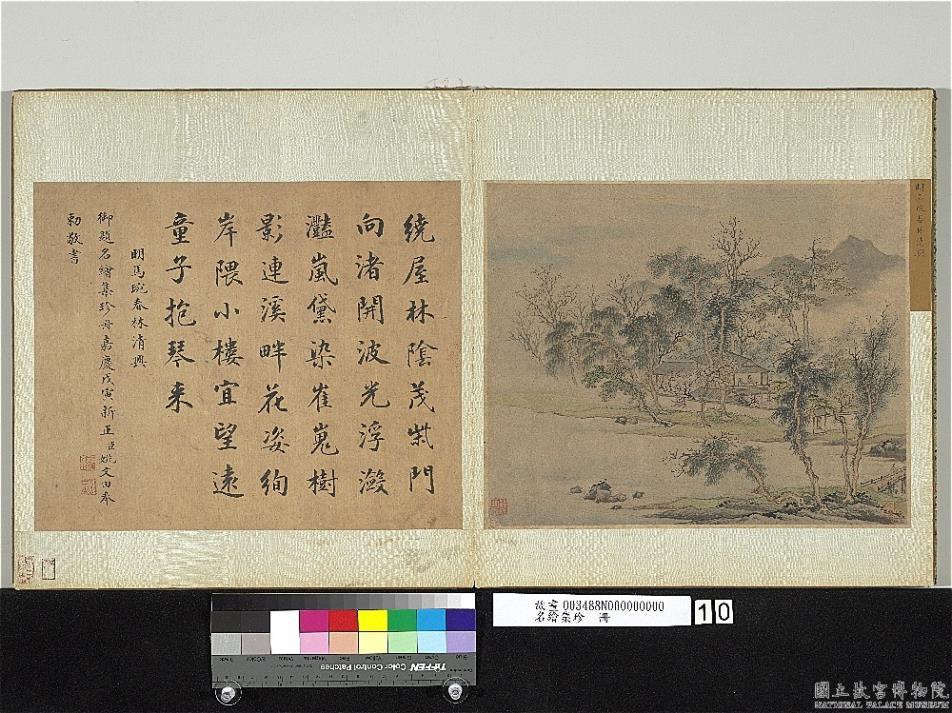 繞屋林陰茂柴門
向渚開波光浮瀲
灩嵐黛染崔嵬樹
影連溪畔花姿絢
岸隈小樓宜望遠
童子抱琴来
明馬琬春林清興
御題名繪集珍冊嘉慶戊寅新正臣姚文田奉
勅敬書
故畫 003488N000000000
名繪集珍 冊
10
Tiffen Color Control Patches
國立故宮博物院
NATIONAL PALACE MUSEUM